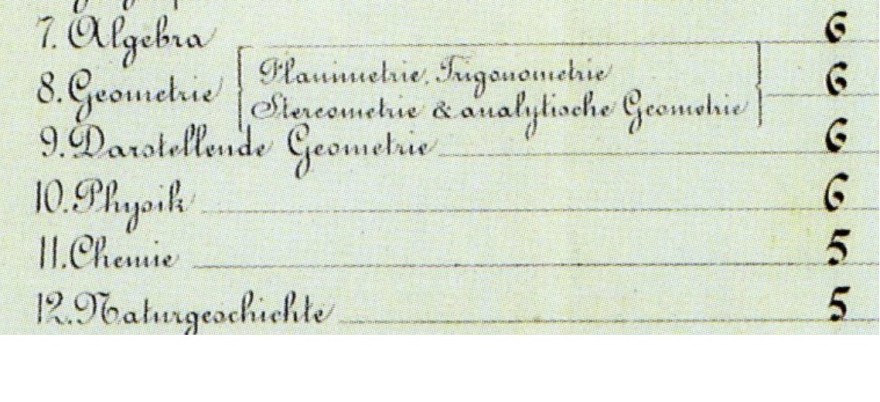 7. Algebra 6
8. Geometrie Planimetrie, Trigonometrie 6
Stereometrie & analytische Geometrie
9. Darstellende Geometrie 6
10. Physik 6
11. Chemie 5
12. Naturgeschichte 5